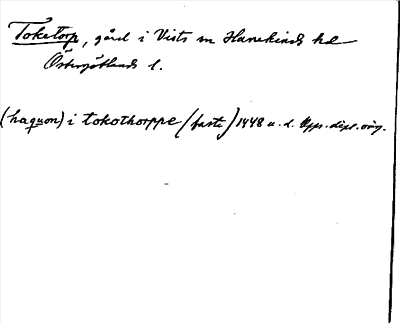 Toketorp, gård i Vists sn Hanekinds hd
Östergötlands l.
(haquon) i tokothorppe (faste) 1448 u. d. Upps. dipl. orig.